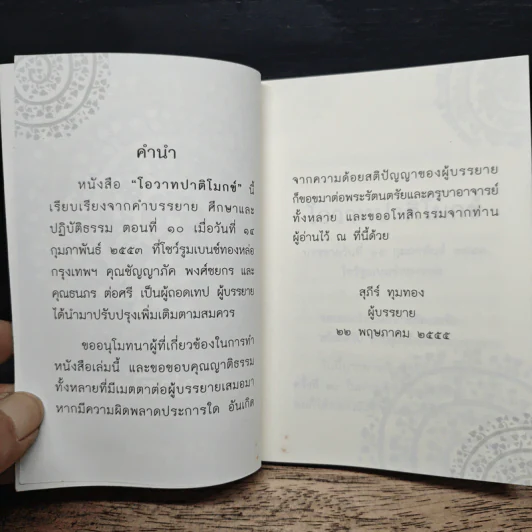 คำนำ
หนังสือ "โอวาทปาติโมกข์" นี้
เรียบเรียงจากคำบรรยาย ศึกษาและ
ปฏิบัติธรรม ตอนที่ ๑๐ เมื่อวันที่ ๑๔
กุมภาพันธ์ ๒๕๕๓ ที่โชว์รูมเบนซ์ทองหล่อ
กรุงเทพฯ คุณชัญญาภัค พงศ์ชยกร และ
คุณธนกร ต่อศรี เป็นผู้ถอดเทป ผู้บรรยาย
ได้นำมาปรับปรุงเพิ่มเติมตามสมควร
ขออนุโมทนาผู้ที่เกี่ยวข้องในการทำ
หนังสือเล่มนี้ และขอขอบคุณญาติธรรม
ทั้งหลายที่มีเมตตาต่อผู้บรรยายเสมอมา
หากมีความผิดพลาดประการใด อันเกิด
จากความด้อยสติปัญญาของผู้บรรยาย
ก็ขอขมาต่อพระรัตนตรัยและครูบาอาจารย์
ทั้งหลาย และขออโหสิกรรมจากท่าน
ผู้อ่านไว้ ณ ที่นี้ด้วย
สุภีร์ ทุมทอง
ผู้บรรยาย
๒๒ พฤษภาคม ๒๕๕๕